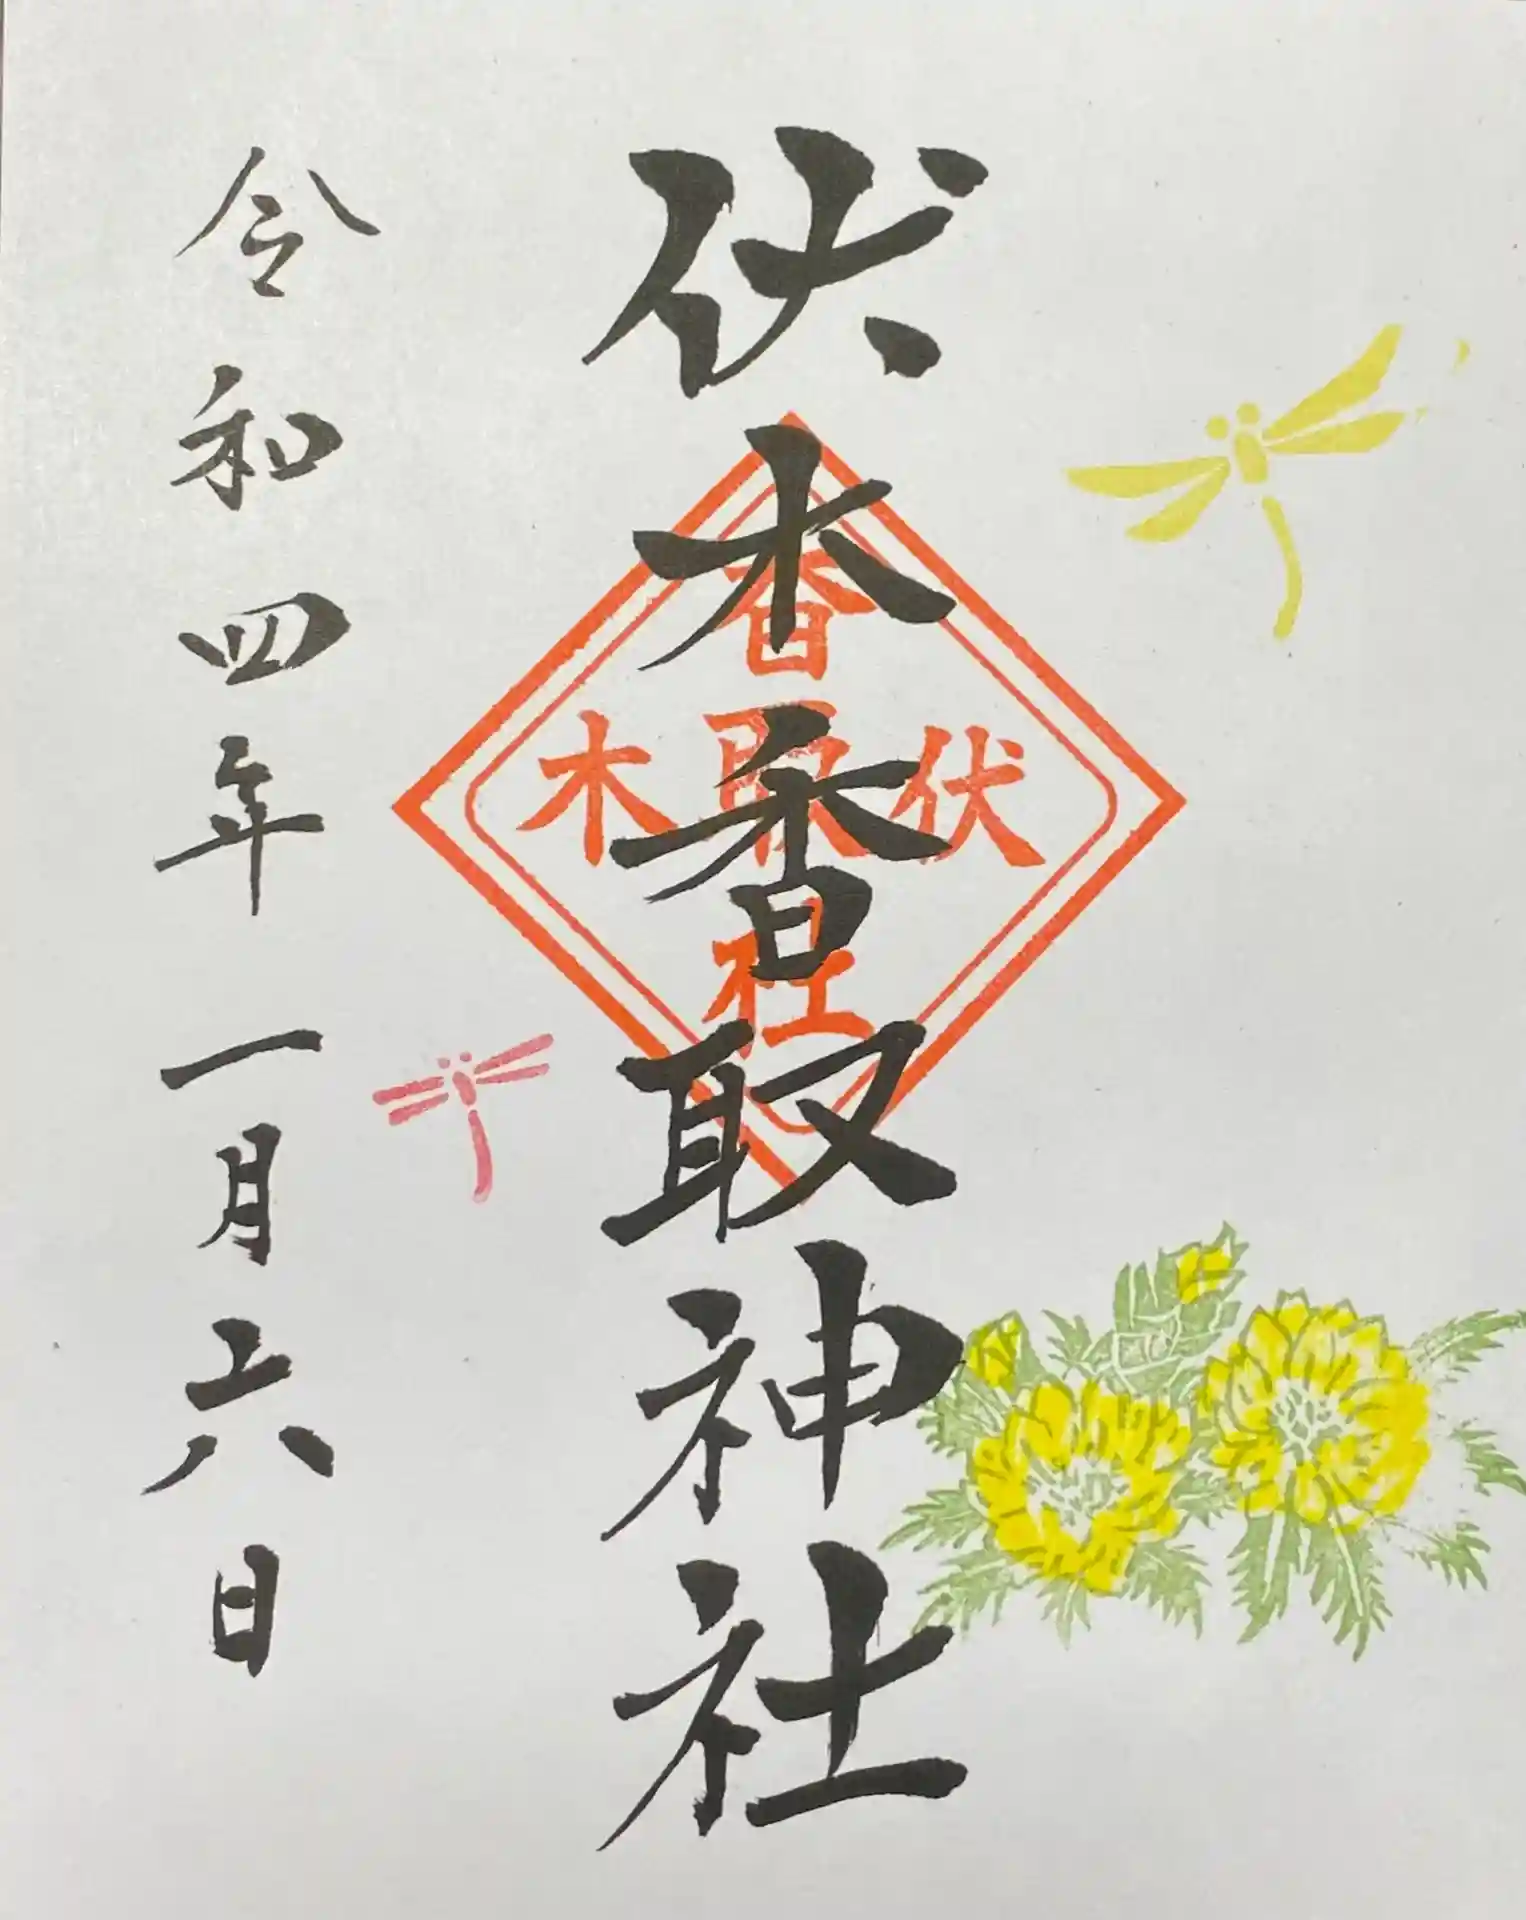 伏木香取神社
伏木
香取社
令和四年一月六日